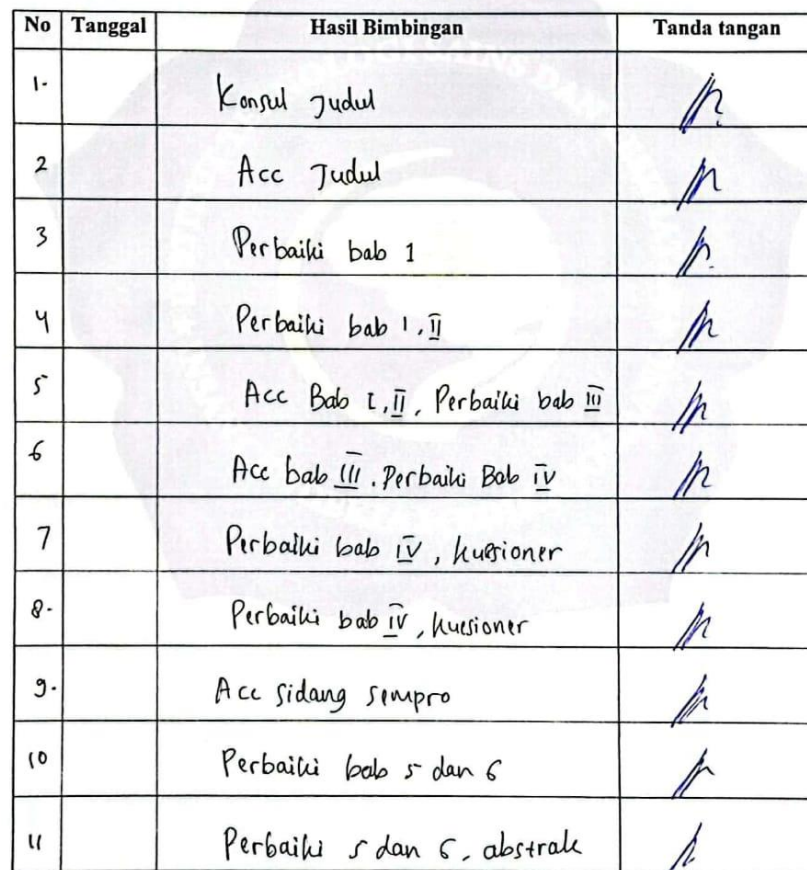 No Tanggal Hasil Bimbingan Tanda tangan
1. Konsul Judul
2 Acc Judul
3 Perbaiki bab 1
4 Perbaiki bab 1, II
5 Acc Bab I, II, Perbaiki bab III
6 Acc bab III, Perbaiki Bab IV
7 Perbaiki bab IV, kuesioner
8. Perbaiki bab IV, kuesioner
9. Acc sidang sempro
10 Perbaiki bab 5 dan 6
11 Perbaiki 5 dan 6, abstrak